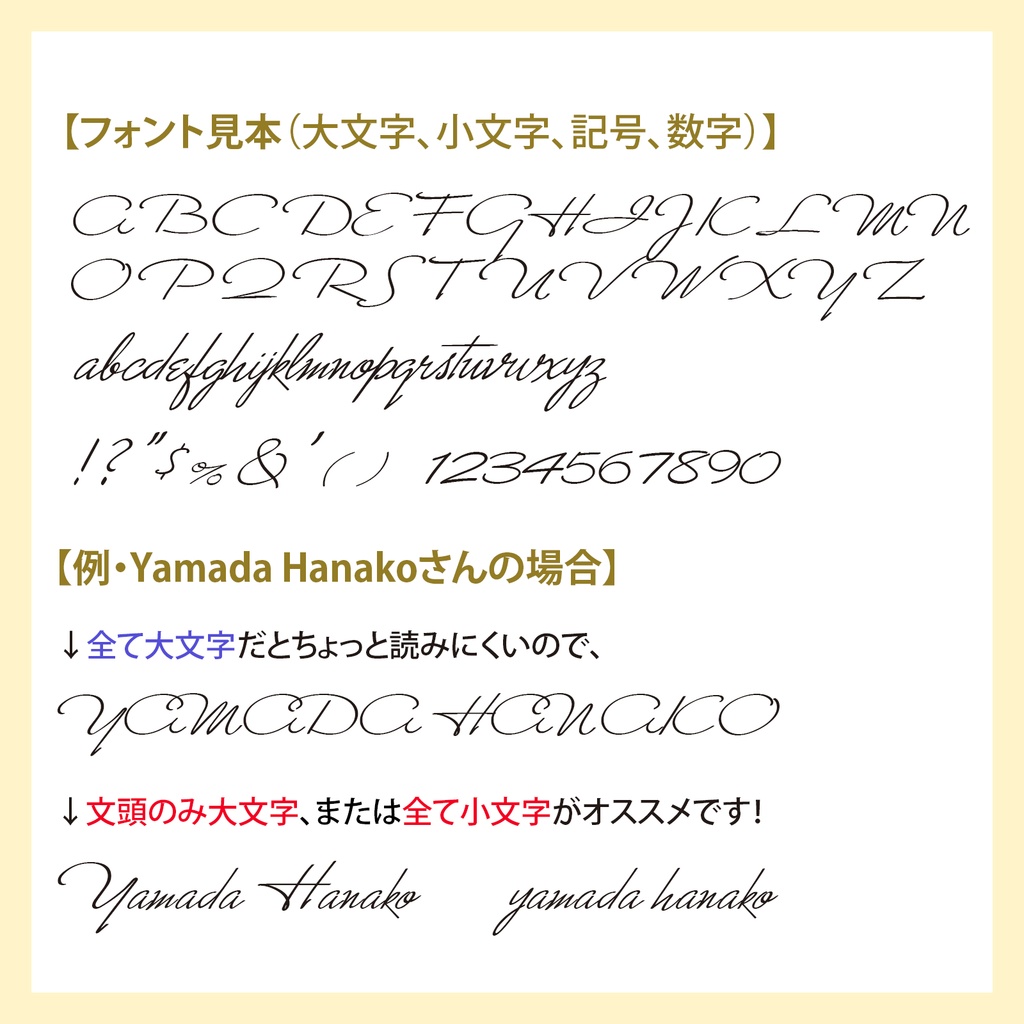 【フォント見本（大文字、小文字、記号、数字）】
ABCDEFGHIJKLMN
OPQRSTUVWXYZ
abcdefghijklmnopqrstuvwxyz
!?"$%&'() 1234567890
【例・Yamada Hanakoさんの場合】
↓全て大文字だとちょっと読みにくいので、
YAMADA HANAKO
↓文頭のみ大文字、または全て小文字がオススメです！
Yamada Hanako yamada hanako